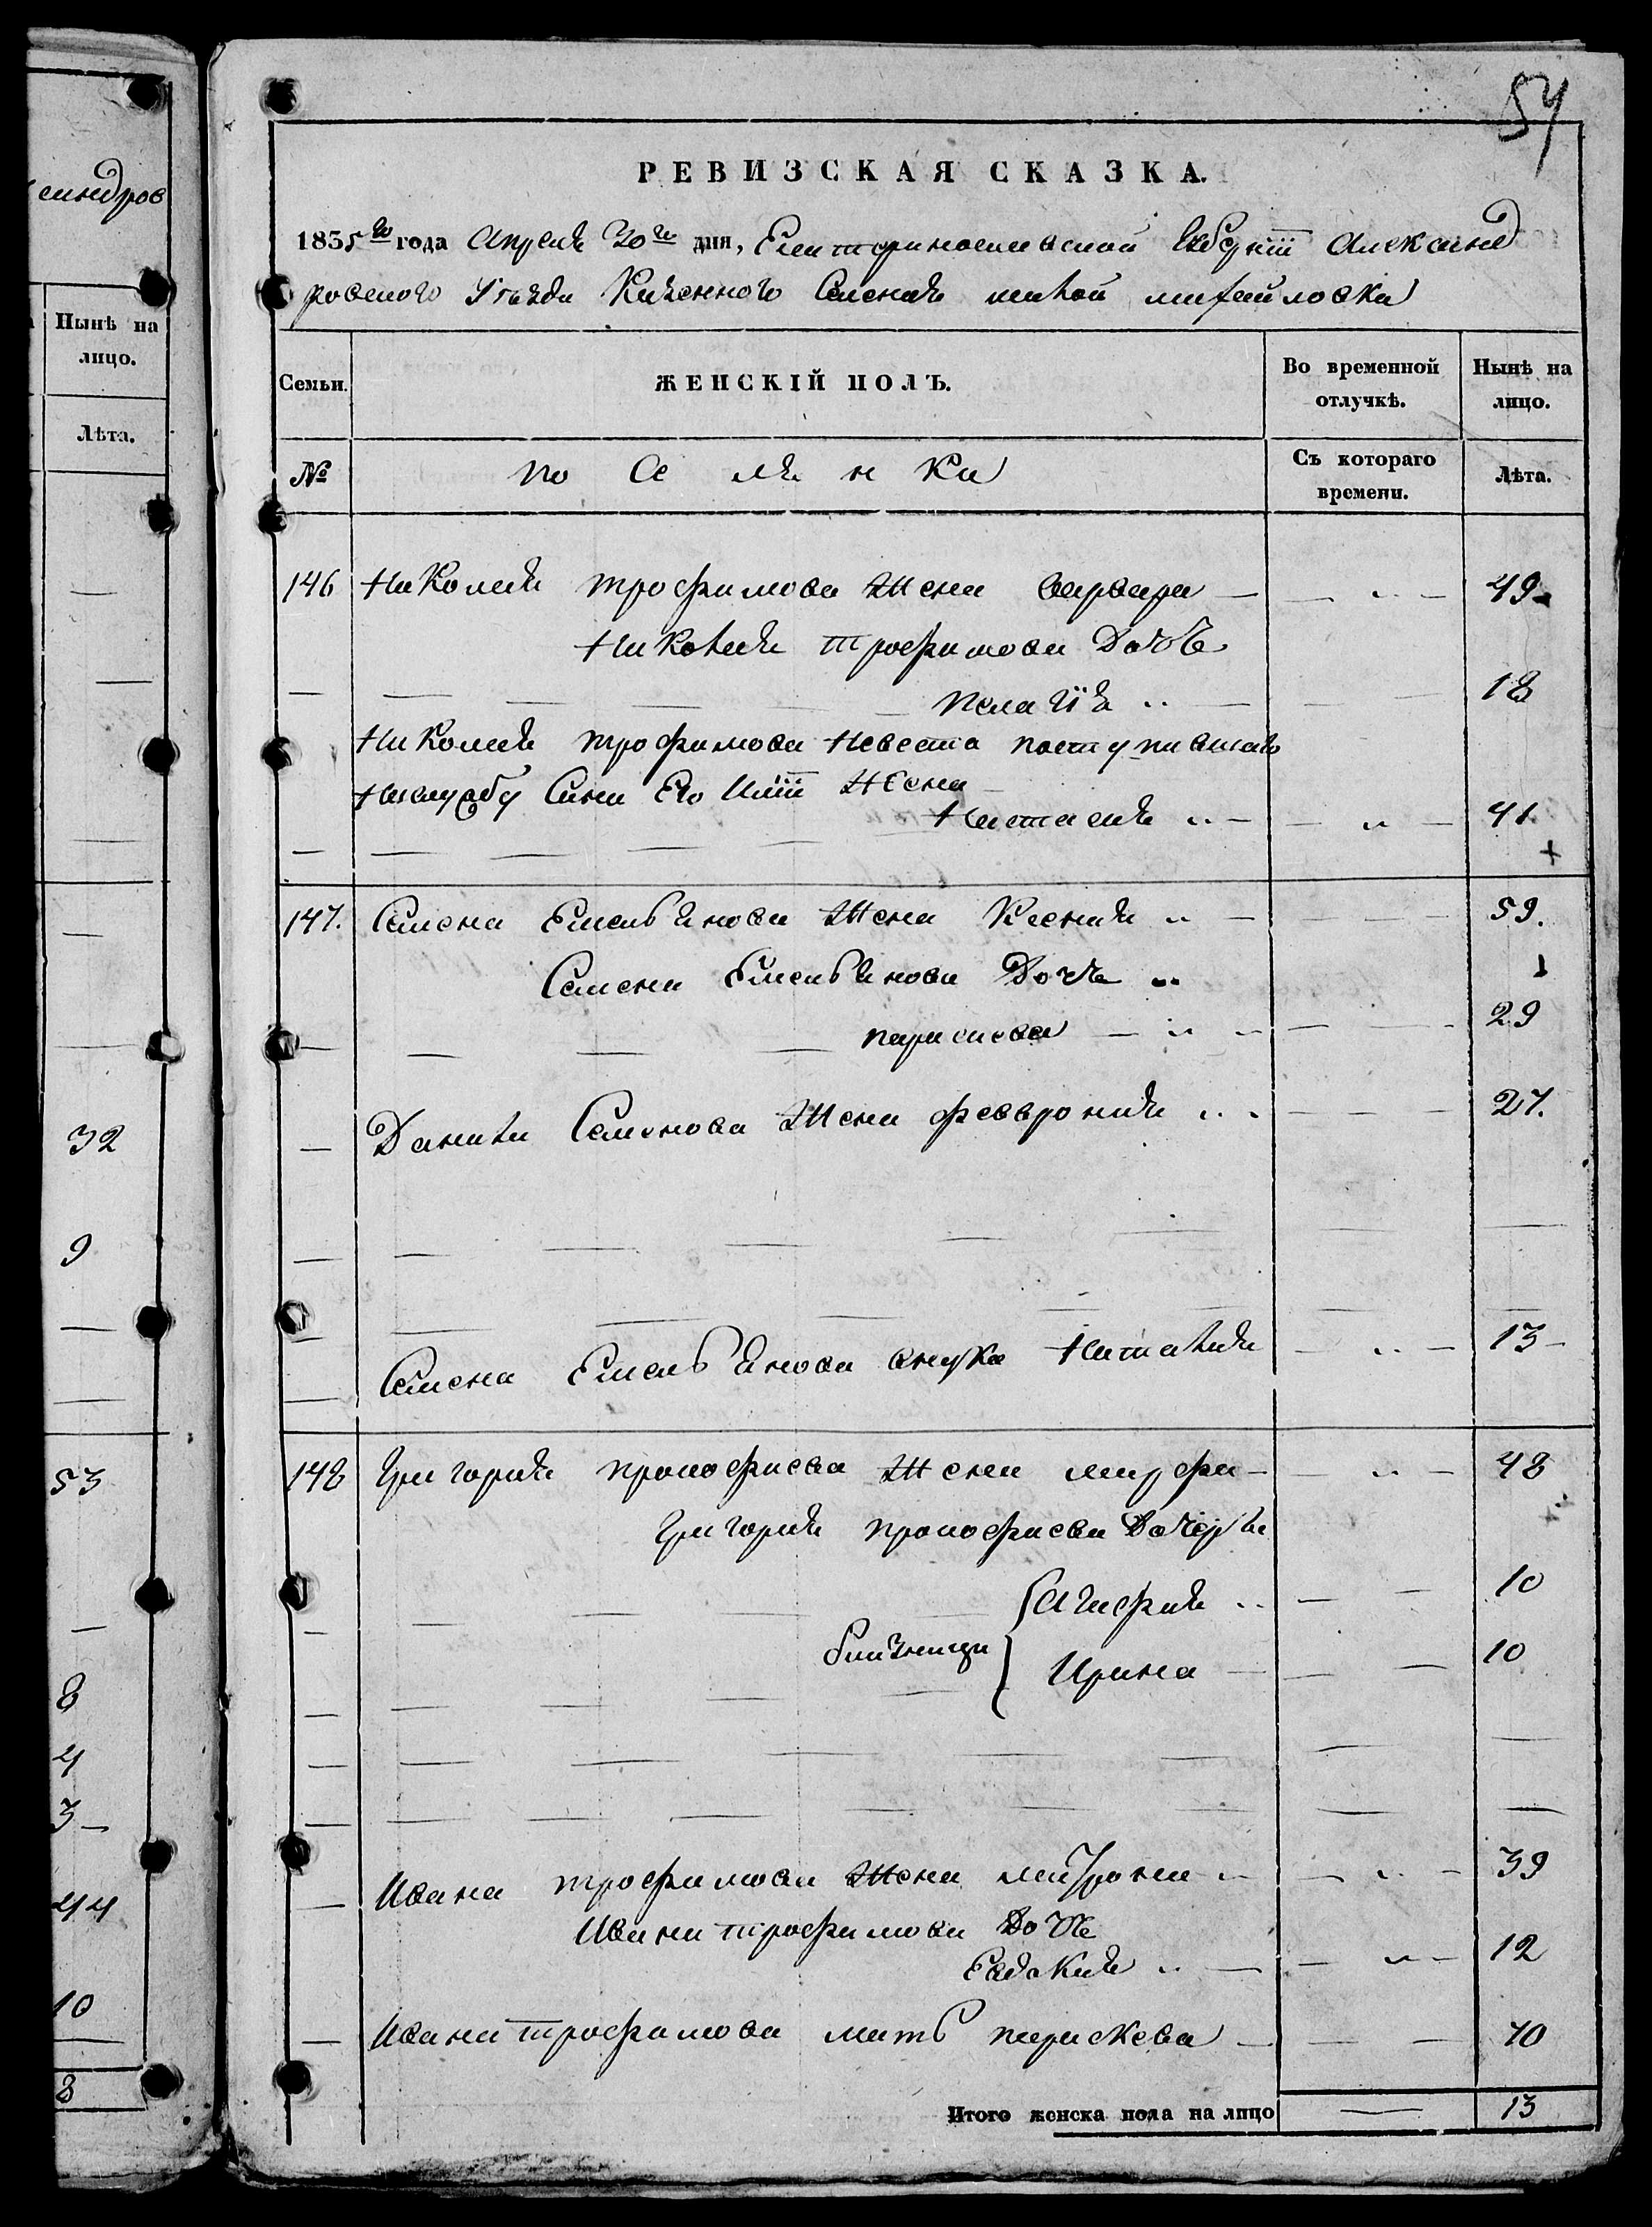 синдров
Нынѣ на
лицо.
Лѣта.
32
9
53
8
4
3
44
10
8
57
РЕВИЗСКАЯ СКАЗКА.
1835го года Апреля 30го дня, Екатеринославской Губернiи Александ
ровского Уѣзда Казенного Селения малой михайловки
Семьи.
ЖЕНСКІЙ ПОЛЪ.
Во временной отлучкѣ.
Нынѣ на лицо.
№
по се ля н ки
Съ котораго времени.
Лѣта.
146 Николая трофимова Жена варвара 49
Николая трофимова Дочь
пелагiя 18
Николая трофимова Невеста поступившаго
На службу Сина Его Жена
Настасия 41
147. Семена Емельянова Жена Ксения 59.
Семена Емельянова Дочь
параскева 29
Данила Семенова Жена феврония 27.
Семена Емельянова внука Наталия 13
148 Григория прокофиева Жена марфа 48
Григория прокофиева Дочери
Агафия 10
близници Ирина 10
Ивана трофимова Жена матрона 39
Ивана трофимова Дочь
Евдокия 12
Ивана трофимова мать параскева 70
Итого женска пола на лицо 13